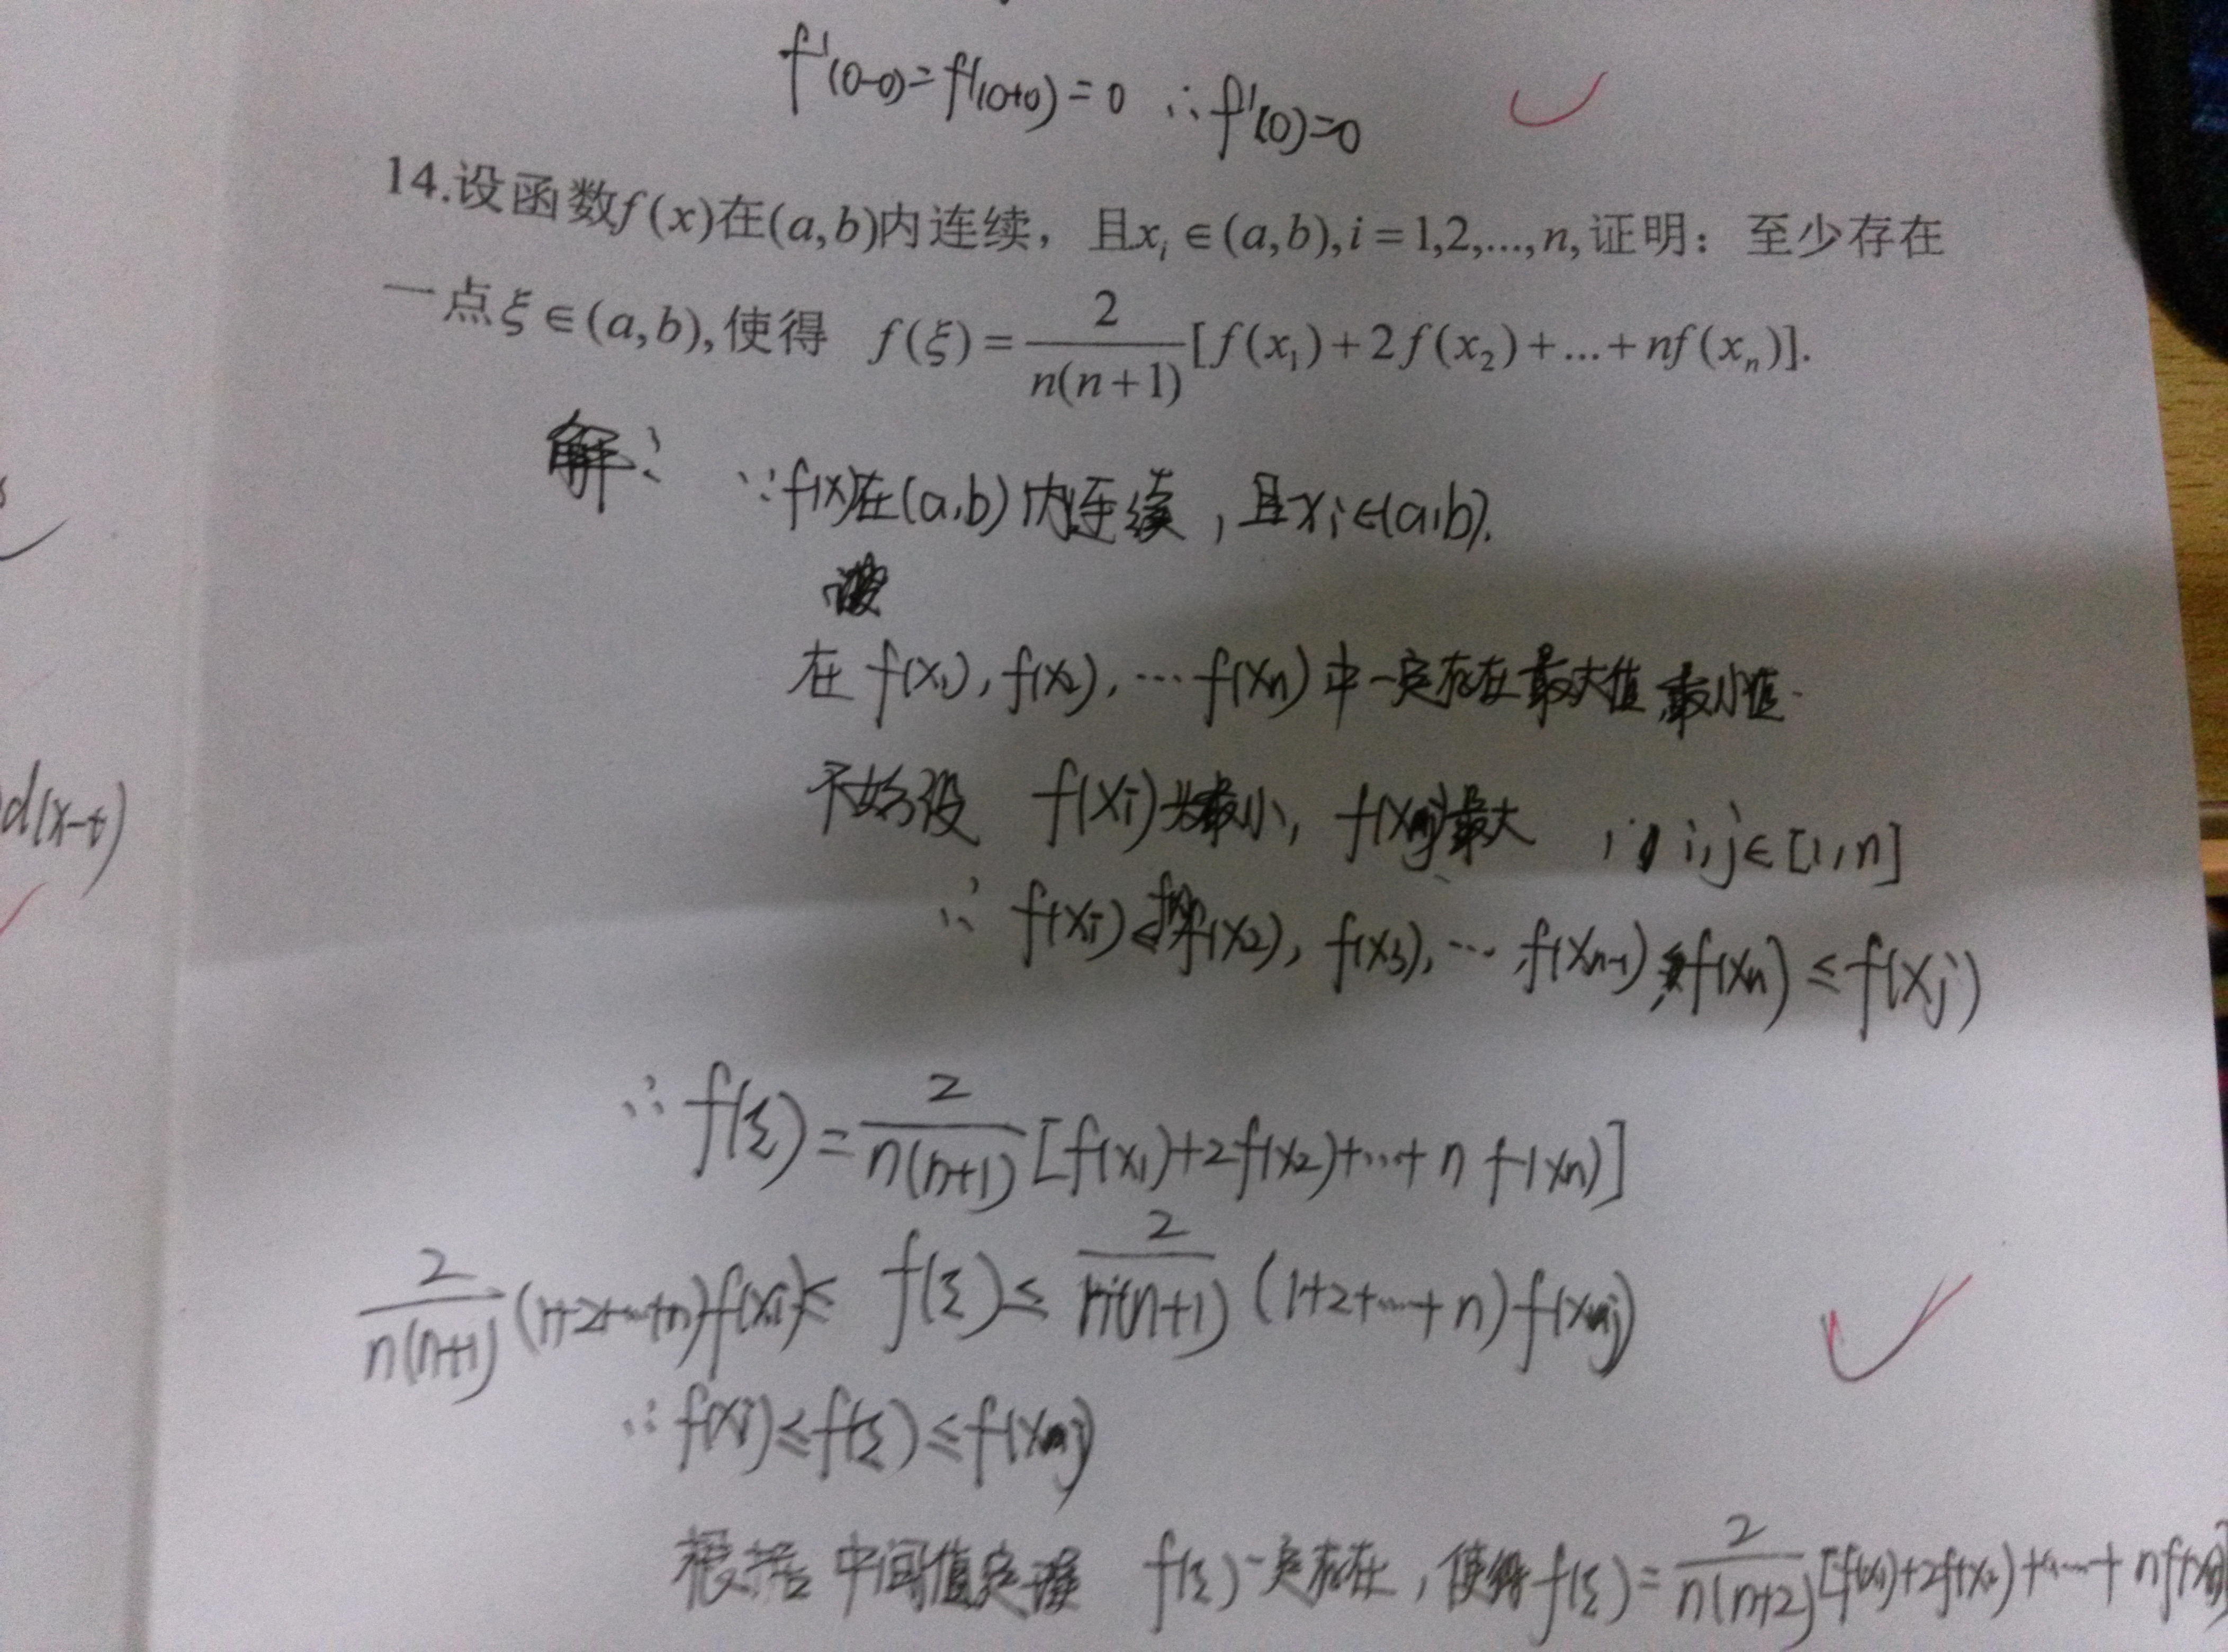 f'(0-0)=f'(0+0)=0 ∴f'(0)=0
14.设函数f(x)在(a,b)内连续，且xᵢ∈(a,b),i=1,2,...,n,证明：至少存在
一点ξ∈(a,b),使得 f(ξ)=2/(n(n+1))[f(x₁)+2f(x₂)+...+nf(xₙ)].
解： ∵f(x)在(a,b)内连续，且xᵢ∈(a,b).
在f(x₁),f(x₂),…f(xₙ)中一定存在最大值,最小值.
不妨设 f(xᵢ)为最小,f(xⱼ)最大 , i,j∈[1,n]
d(x-t)
∴ f(xᵢ)≤f(x₂),f(x₃),…,f(xₙ₋₁),f(xₙ)≤f(xⱼ)
∴f(ξ)=2/(n(n+1))[f(x₁)+2f(x₂)+…+n f(xₙ)]
2/(n(n+1))(1+2+…+n)f(xᵢ)≤ f(ξ)≤2/(n(n+1))(1+2+…+n)f(xⱼ)
∴f(xᵢ)≤f(ξ)≤f(xⱼ)
根据中间值定理 f(ξ)一定存在，使得f(ξ)=2/(n(n+2))[f(x₁)+2f(x₂)+…+nf(xₙ)]